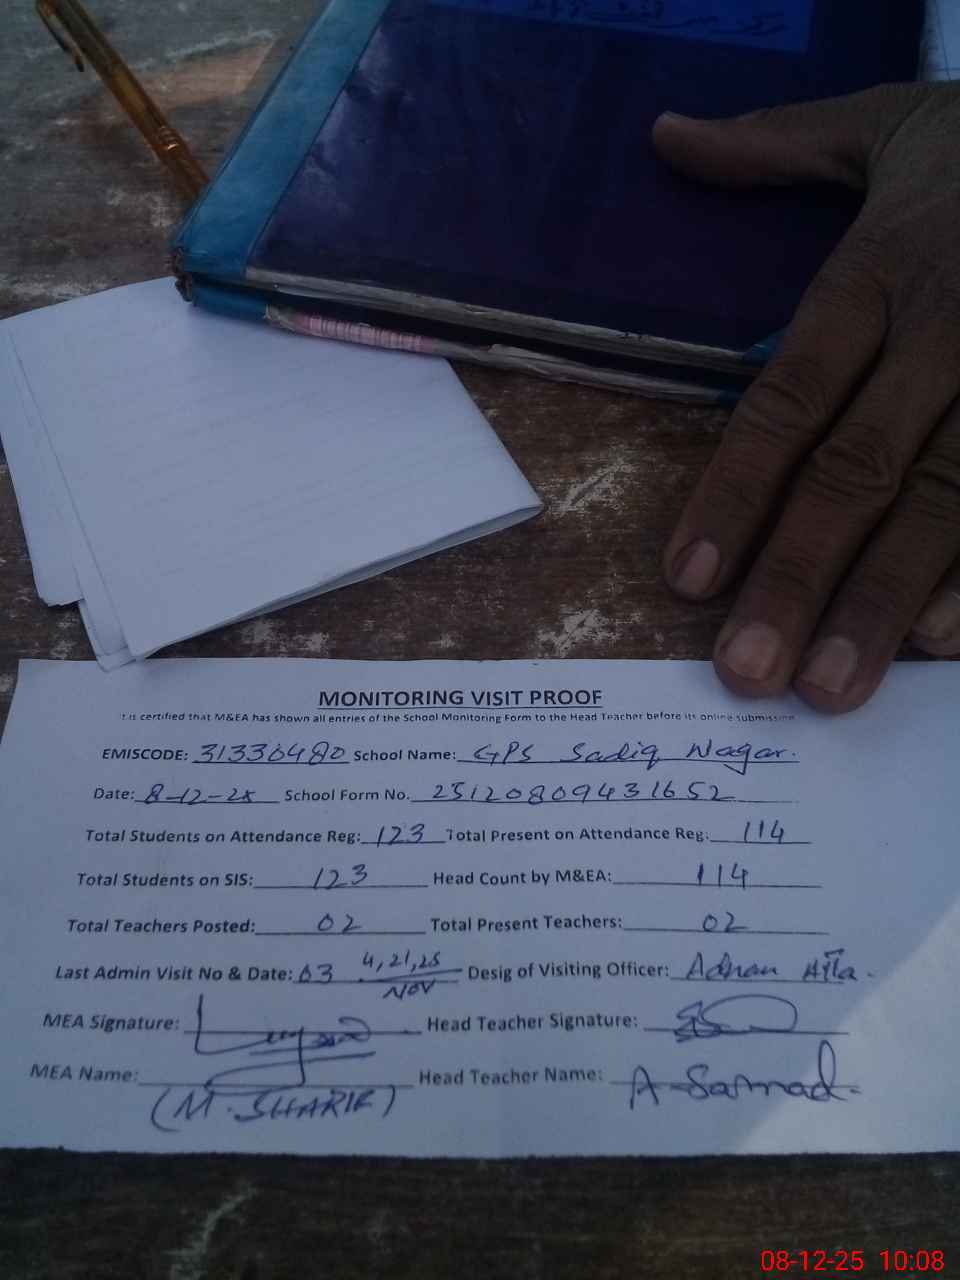 MONITORING VISIT PROOF
It is certified that M&EA has shown all entries of the School Monitoring Form to the Head Teacher before its online submission
EMISCODE: 31330480 School Name: GPS Sadiq Nagar.
Date: 8-12-25 School Form No. 25120809431652
Total Students on Attendance Reg: 123 Total Present on Attendance Reg. 114
Total Students on SIS: 123 Head Count by M&EA: 114
Total Teachers Posted: 02 Total Present Teachers: 02
Last Admin Visit No & Date: 03 4,21,25 Nov Desig of Visiting Officer: Adnan
MEA Signature: Head Teacher Signature:
MEA Name: (M. SHARIF) Head Teacher Name: A-Samad.
08-12-25 10:08